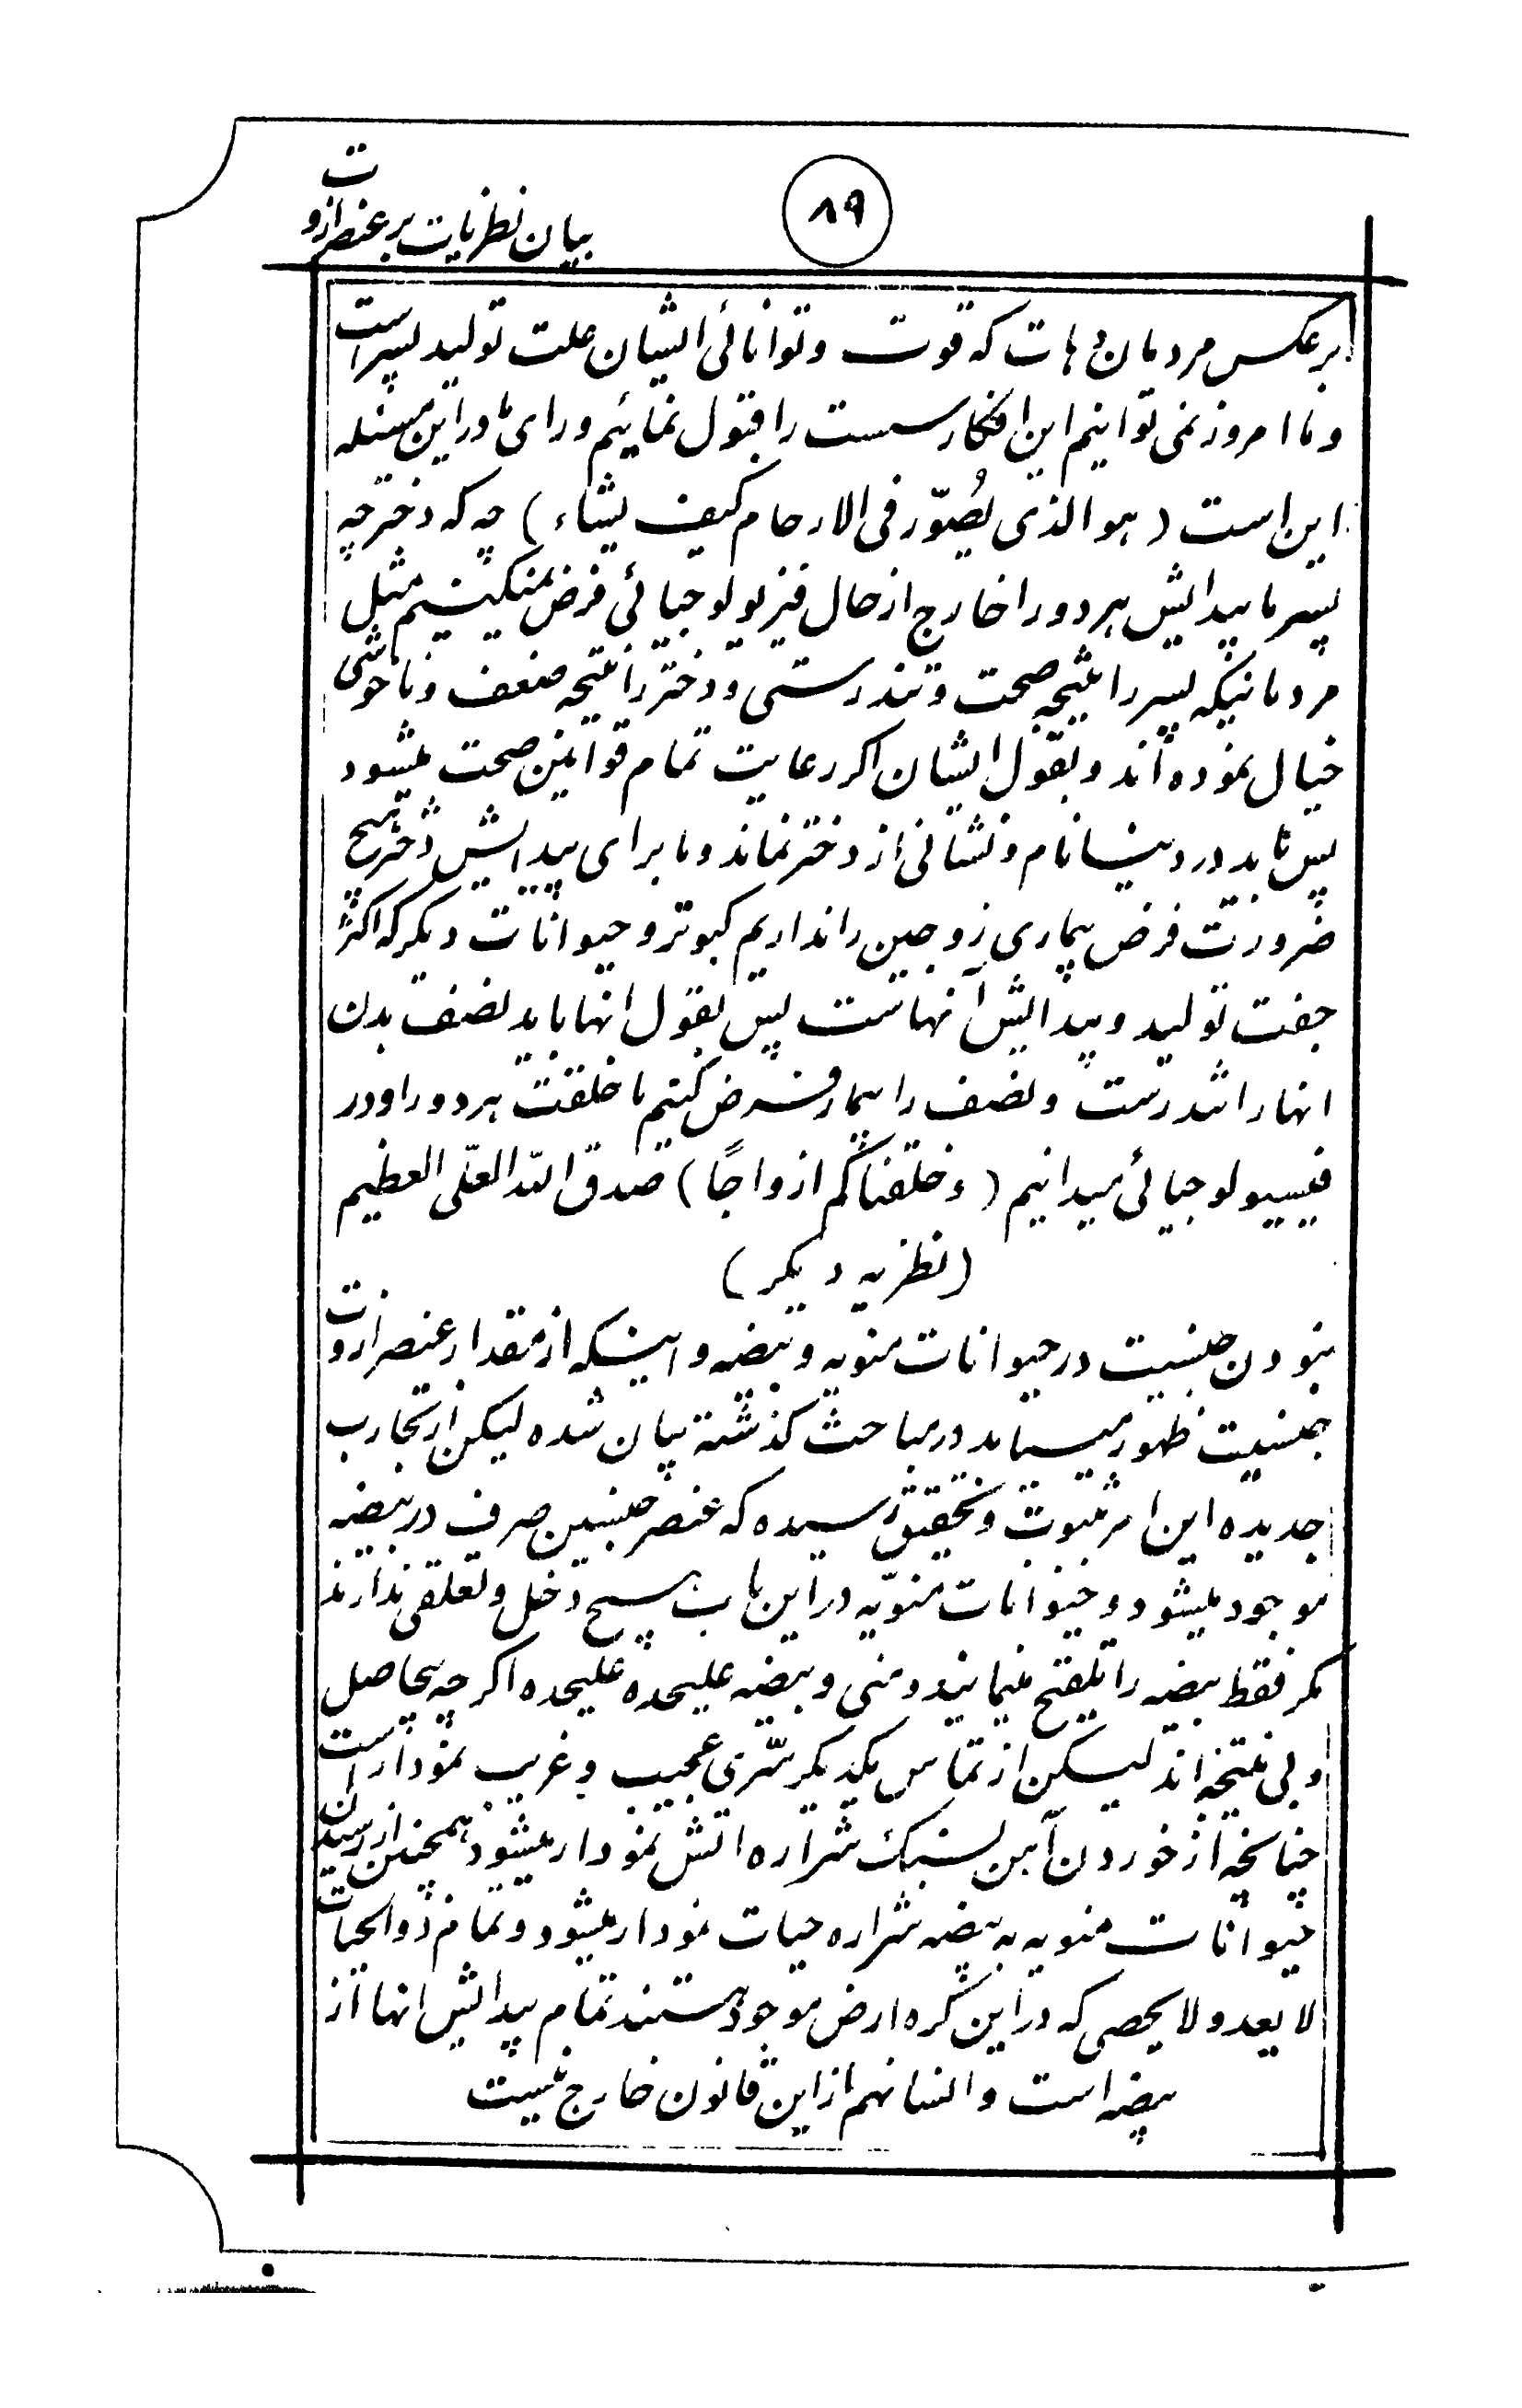 ۸۹
بیان نظریات بر عنصر ازوت
برعکس مردمان دهات که قوت و توانائی ایشان علت تولید پسر است
و ما امروز نمی توانیم این افکار سست را قبول نمائیم و رای ما در این مسئله
این است (هو الذی یُصوّر فی الارحام کیف یشاء) چه که دختر چه
پسر ما پیدایش هر دو را خارج از حال فیزیولوجیائی فرض نمیکنیم مثل
مردمانیکه پسر را نتیجه صحت و تندرستی و دختر را نتیجه ضعف و ناخوشی
خیال نموده اند و بقول ایشان اکر رعایت تمام قوانین صحت میشود
پس باید در دنیا نام و نشانی از دختر نماند و ما برای پیدایش دختر هیچ
ضرورت فرض بیماری زوجین را نداریم کبوتر و حیوانات دیکر که اکثر
جفت تولید و پیدایش آنهاست پس بقول انها باید نصف بدن
انها را تندرست و نصف را بیمار فرض کنیم ما خلقت هر دو را و در
فیسیولوجیائی میدانیم (و خلقناکم ازواجًا) صدق الله العلّی العظیم
(نظریه دیکر)
نبودن جنسیت در حیوانات منویه و بیضه و اینکه از مقدار عنصر ازوت
جنسیت ظهور مییابد در مباحث کذشته بیان شده لیکن از تجارب
جدیده این امر بثبوت و تحقیق رسیده که عنصر جنسین صرف در بیضه
موجود میشود و حیوانات منوّیه در این باب هیچ دخل و تعلقی ندارند
مکر فقط بیضه را تلقیح مینمایند و منی و بیضه علیحده علیحده اکر چه بیحاصل
و بی نتیجه اند لیکن از تماس یکدیکر سّری عجیب و غریب نمودار است
چنانچه از خوردن آهن بسنک شراره اتش نمودار میشود همچنین از رسیدن
حیوانات منویه به بیضه شراره حیات نمودار میشود و تمام ذوالحیات
لا یعد و لا یحصی که در این کره ارض موجود هستند تمام پیدایش انها از
بیضه است و انسانهم از این قانون خارج نیست